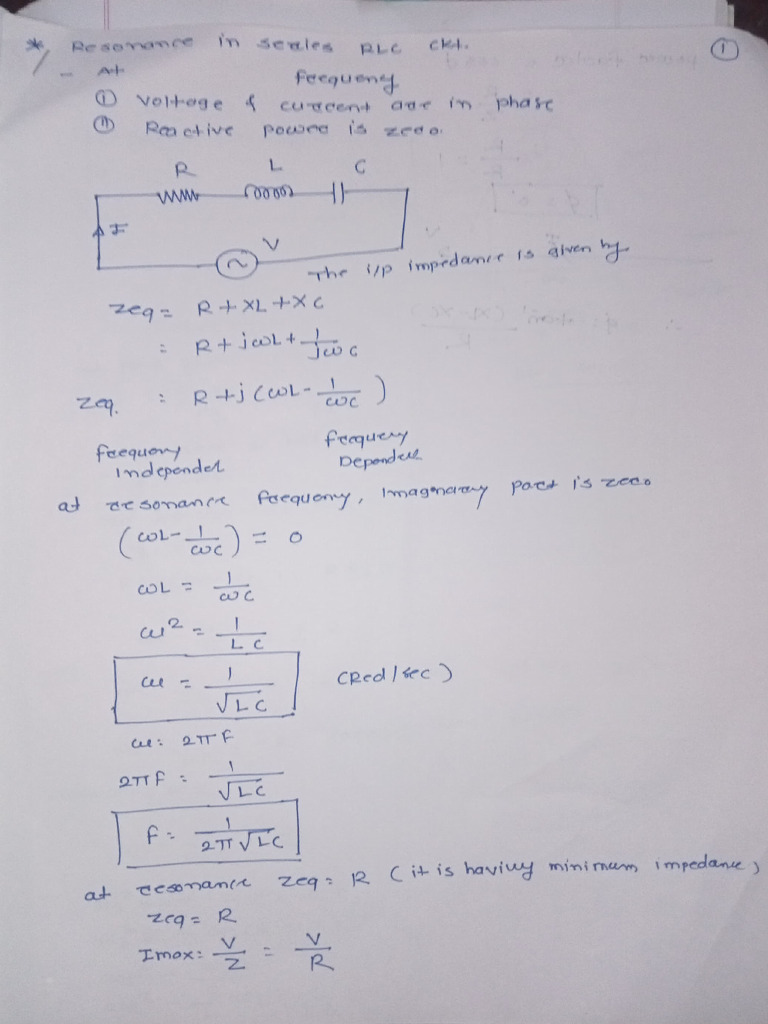 * Resonance in series RLC ckt. ①
- At frequency
① Voltage & current are in phase
② Reactive power is zero.
R L C
I
V
The i/p impedance is given by
Zeq = R + XL + XC
= R + jωL + 1/jωC
Zeq. = R + j(ωL - 1/ωC)
frequency Independent
frequency Dependent
at resonance frequency, Imaginary part is zero
(ωL - 1/ωC) = 0
ωL = 1/ωC
ω² = 1/LC
ω = 1/√LC (Rad/sec)
ω = 2πF
2πF = 1/√LC
f = 1/2π√LC
at resonance Zeq = R (it is having minimum impedance)
Zeq = R
Imax = V/Z = V/R